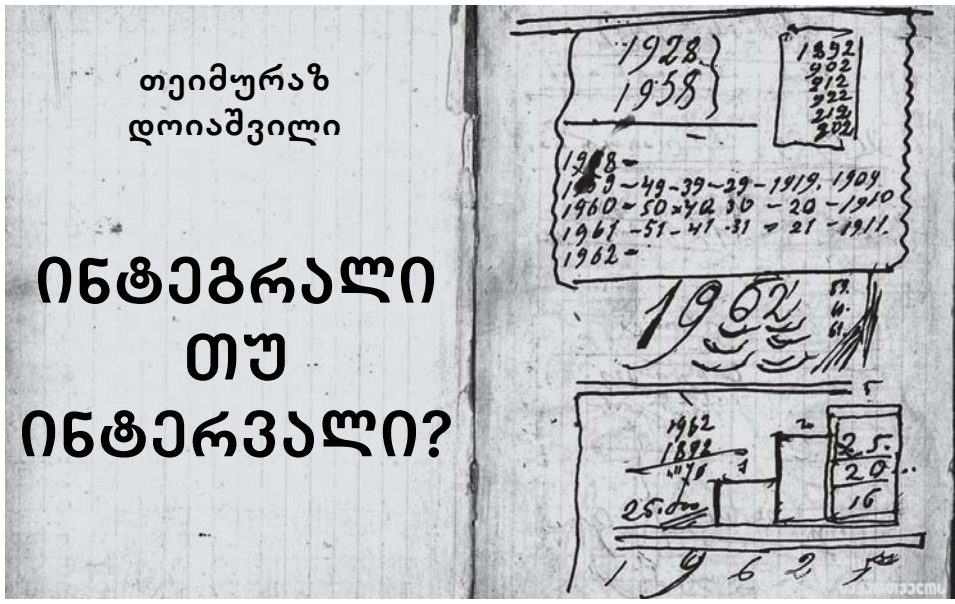 თეიმურაზ
დოიაშვილი
ინტეგრალი
თუ
ინტერვალი?
1928
1958
1892
902
912
922
219
902
1959 - 49 - 39 - 29 - 1919. 1909
1960 - 50 - 40 30 - 20 - 1910
1961 - 51 - 41 - 31 - 21 - 1911.
1962 -
1962
59.
61.
1962
1892
25.
20
16
1 9 6 2